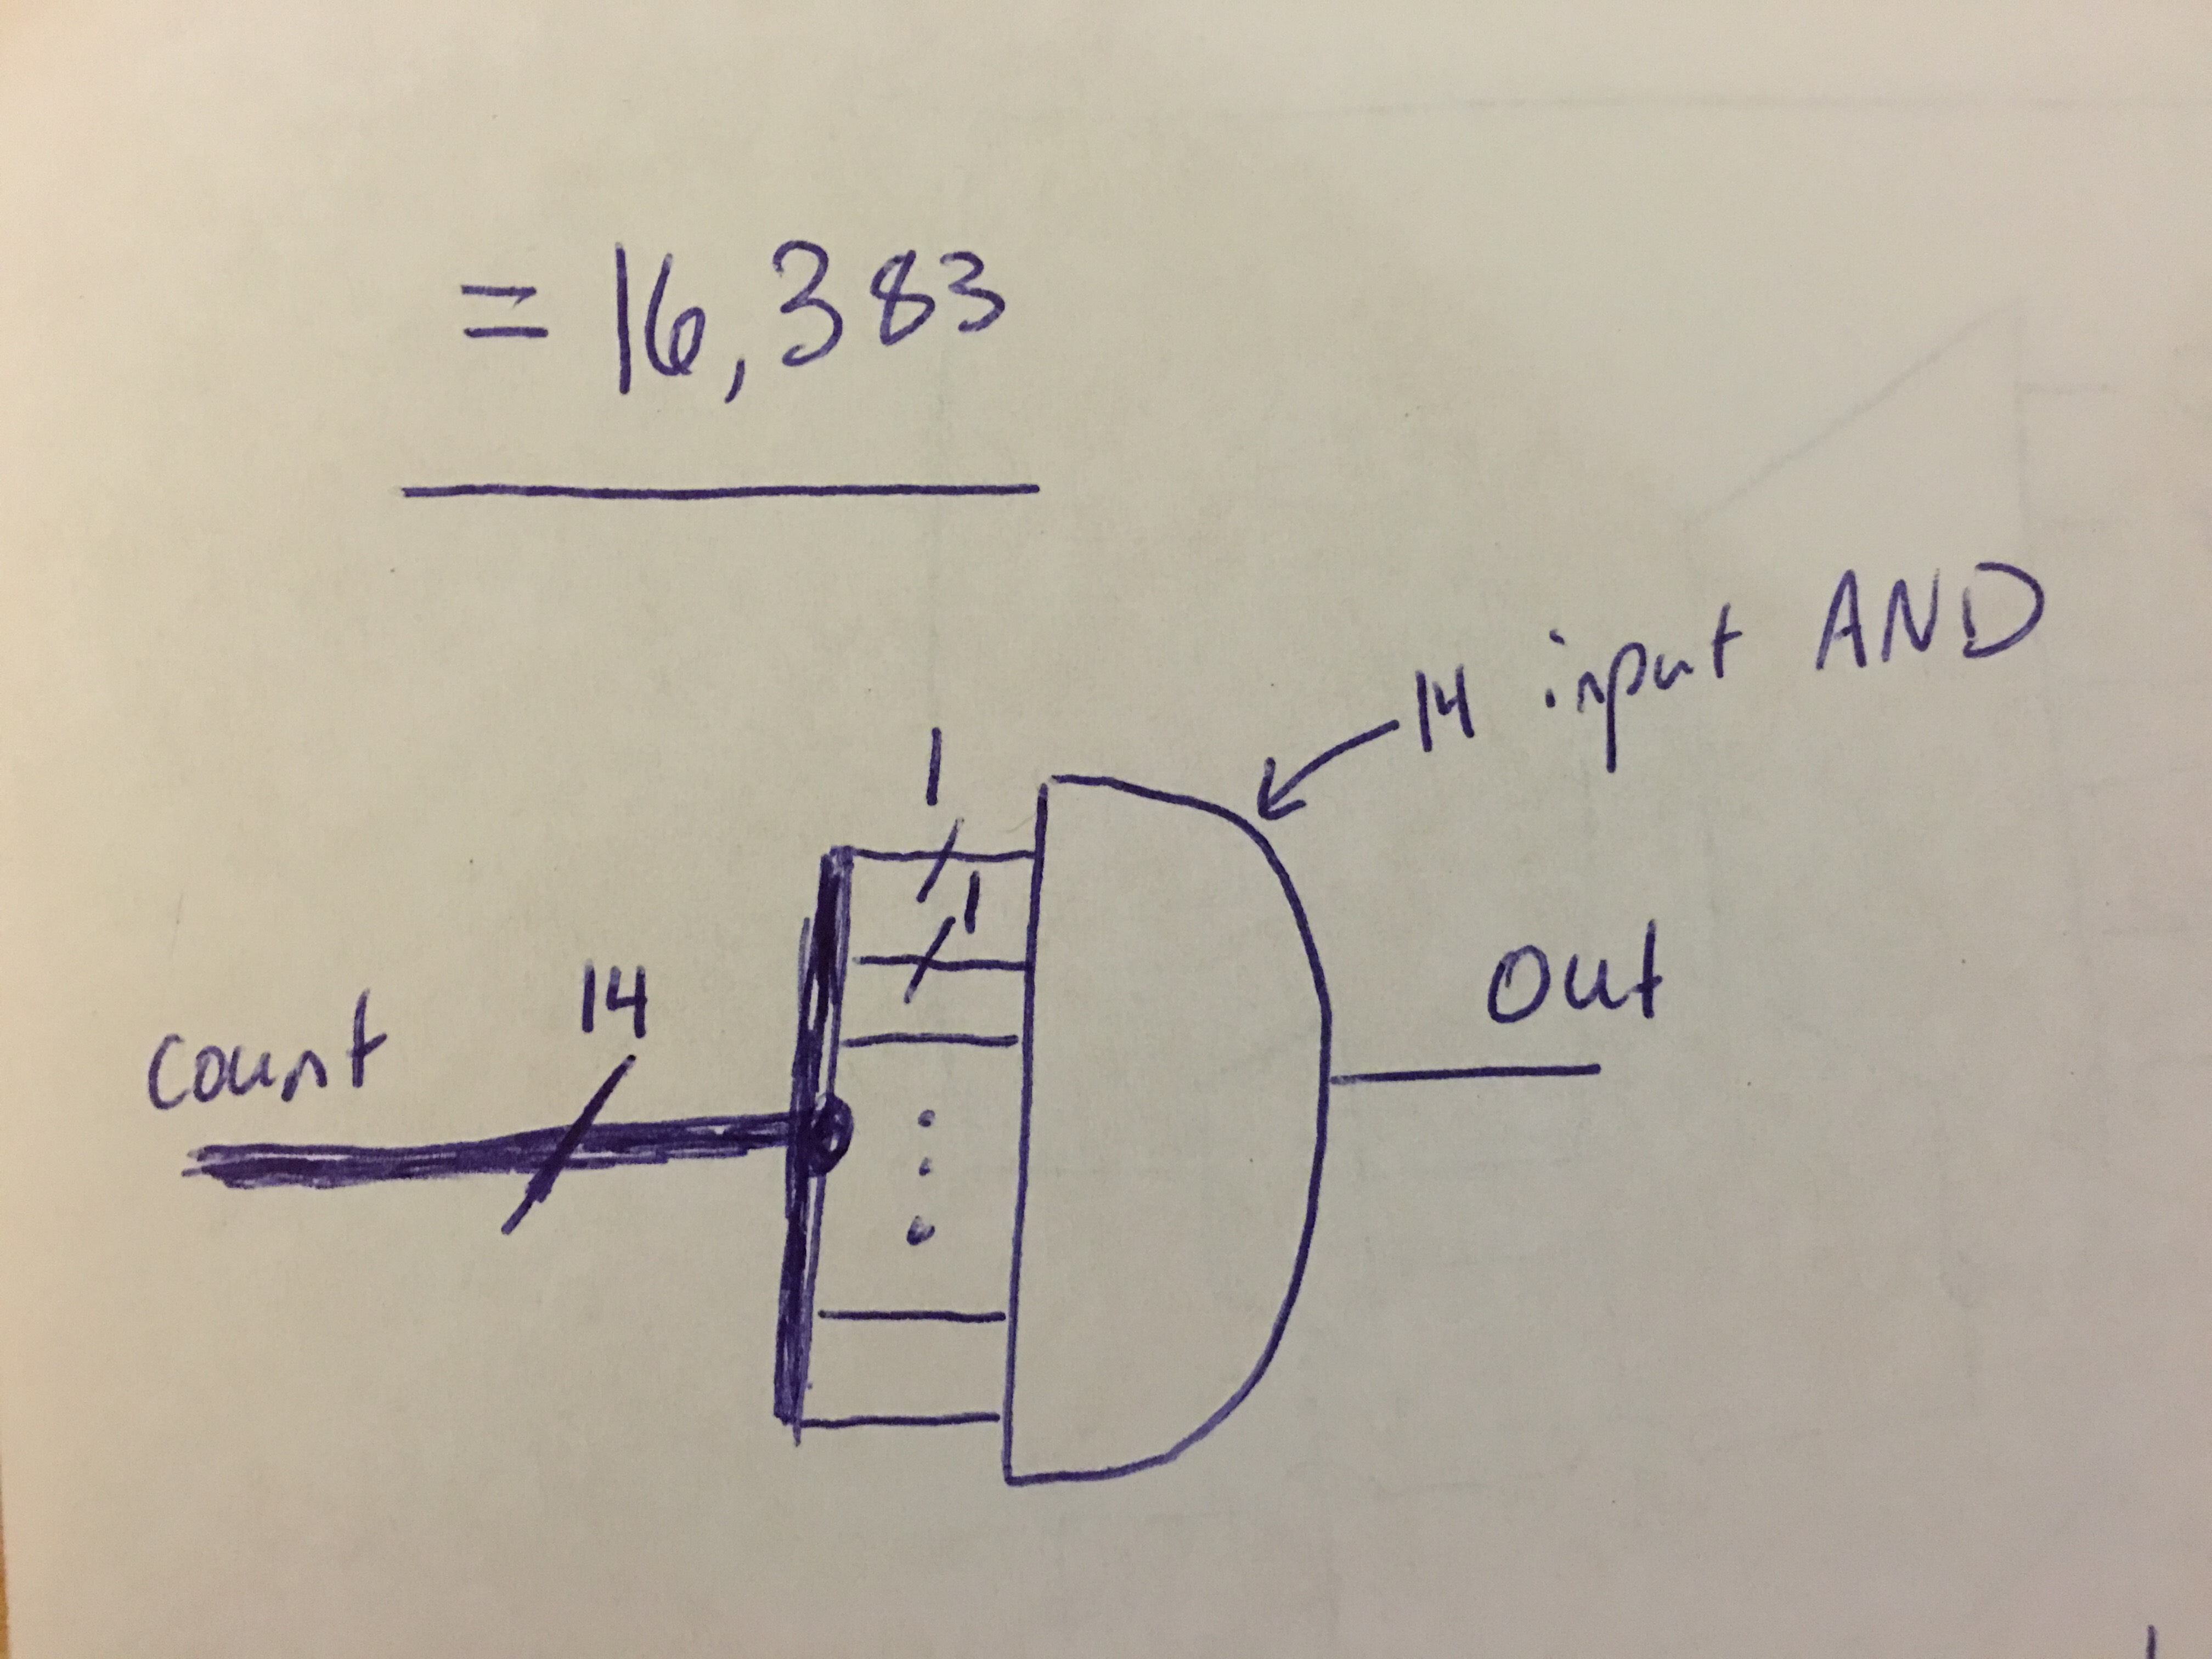 = 16,383
14 input AND
1
1
14
count
Out